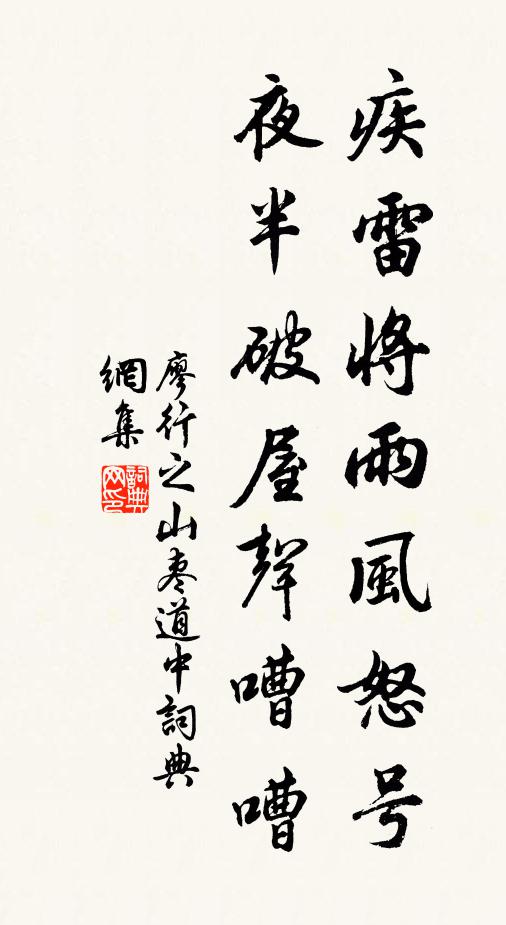 疾雷將雨風怒号
夜半破屋聲嘈嘈
廖行之山枣道中詞典
網集
詞典网印